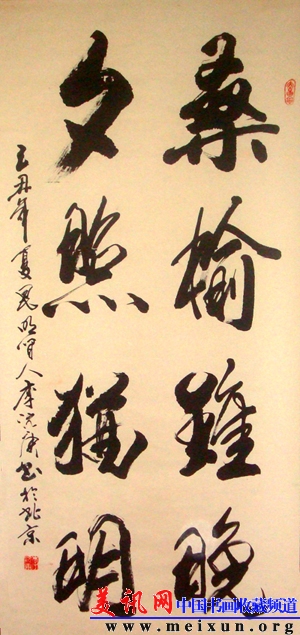 桑榆雖晚
夕照猶明
己丑年夏昆明閒人李书於北京
美讯网 中国书画收藏频道
www.meixun.org